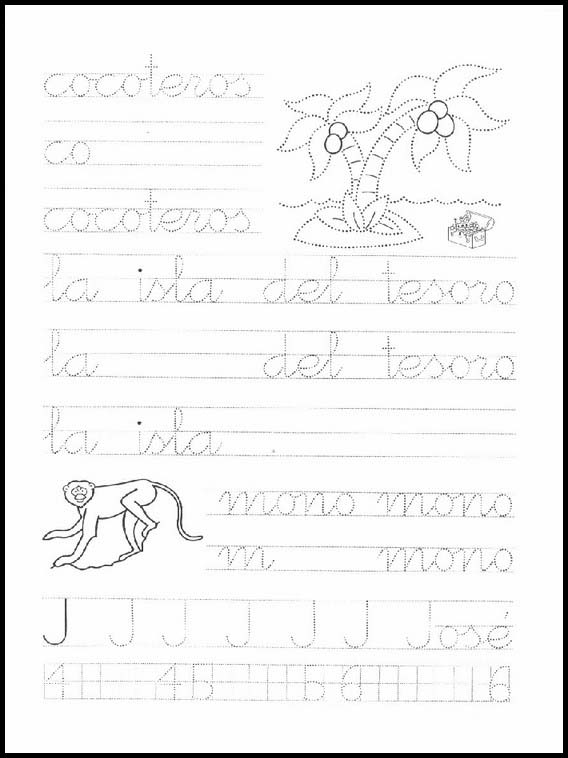 cocoteros
co
cocoteros
la isla del tesoro
la del tesoro
la isla
mono mono
m mono
J J J J J J José
4 4 5 5 6 6